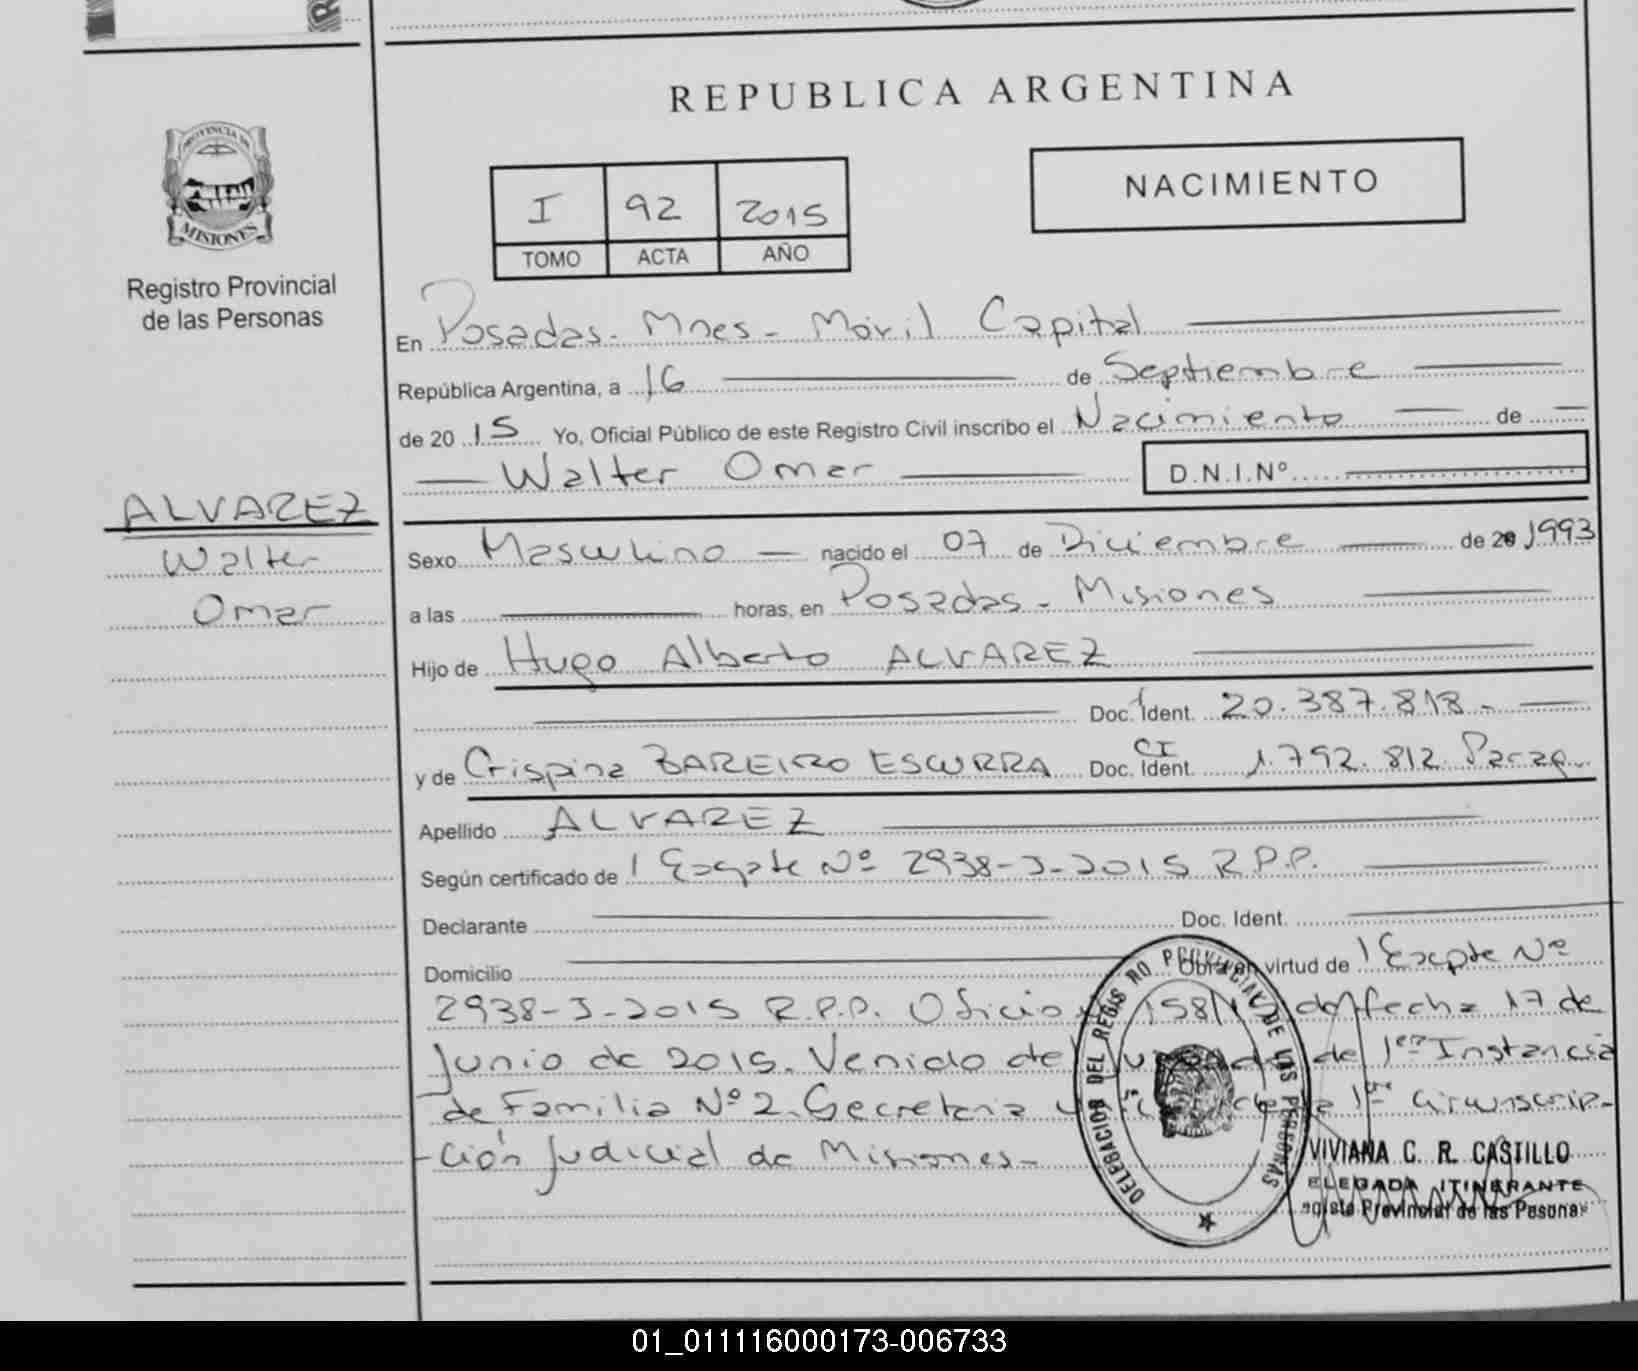 REPUBLICA ARGENTINA
PROVINCIA DE
MISIONES
Registro Provincial
de las Personas
NACIMIENTO
I 92 2015
TOMO ACTA AÑO
En Posadas - Mnes - Móvil Capital
República Argentina, a 16 de Septiembre
de 2015 Yo, Oficial Público de este Registro Civil inscribo el Nacimiento de
Walter Omar D.N.I.Nº
ALVAREZ
Walter
Omar
Sexo Masculino nacido el 07 de Diciembre de 20 1993
a las horas, en Posadas - Misiones
Hijo de Hugo Alberto ALVAREZ
Doc. Ident. 20.387.818 -
y de Crispina BAREIRO ESCURRA CI Doc. Ident. 1.792.812 Parag.
Apellido ALVAREZ
Según certificado de Expte Nº 2938-J-2015 R.P.P.
Declarante Doc. Ident.
Domicilio Obra en virtud de Expte Nº
2938-J-2015 R.P.P. Oficio 158 de fecha 17 de
Junio de 2015. Venido del de 1era Instancia
de Familia Nº 2 Secretaria 1era Circunscrip-
ción Judicial de Misiones -
DELEGACION DEL REGISTRO PROVINCIAL DE LAS PERSONAS
VIVIANA C. R. CASTILLO
ELEGADA ITINERANTE
Provincial de las Pesonas
01_011116000173-006733